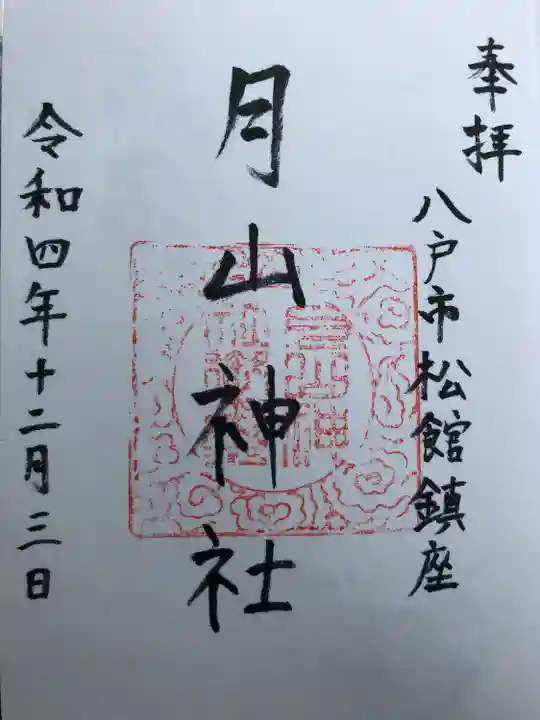 奉拝
八戸市松館鎮座
月山神社
令和四年十二月三日